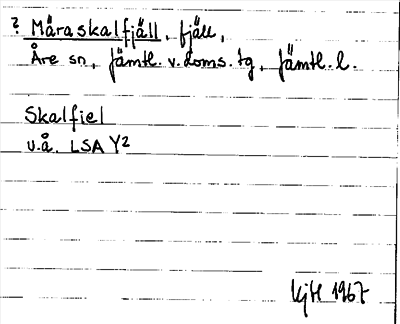 ? Måraskalfjäll, fjäll,
Åre sn, Jämtl. v. doms. tg, Jämtl. l.
Skalfjel
u.å. LSA Y2
KjH 1967